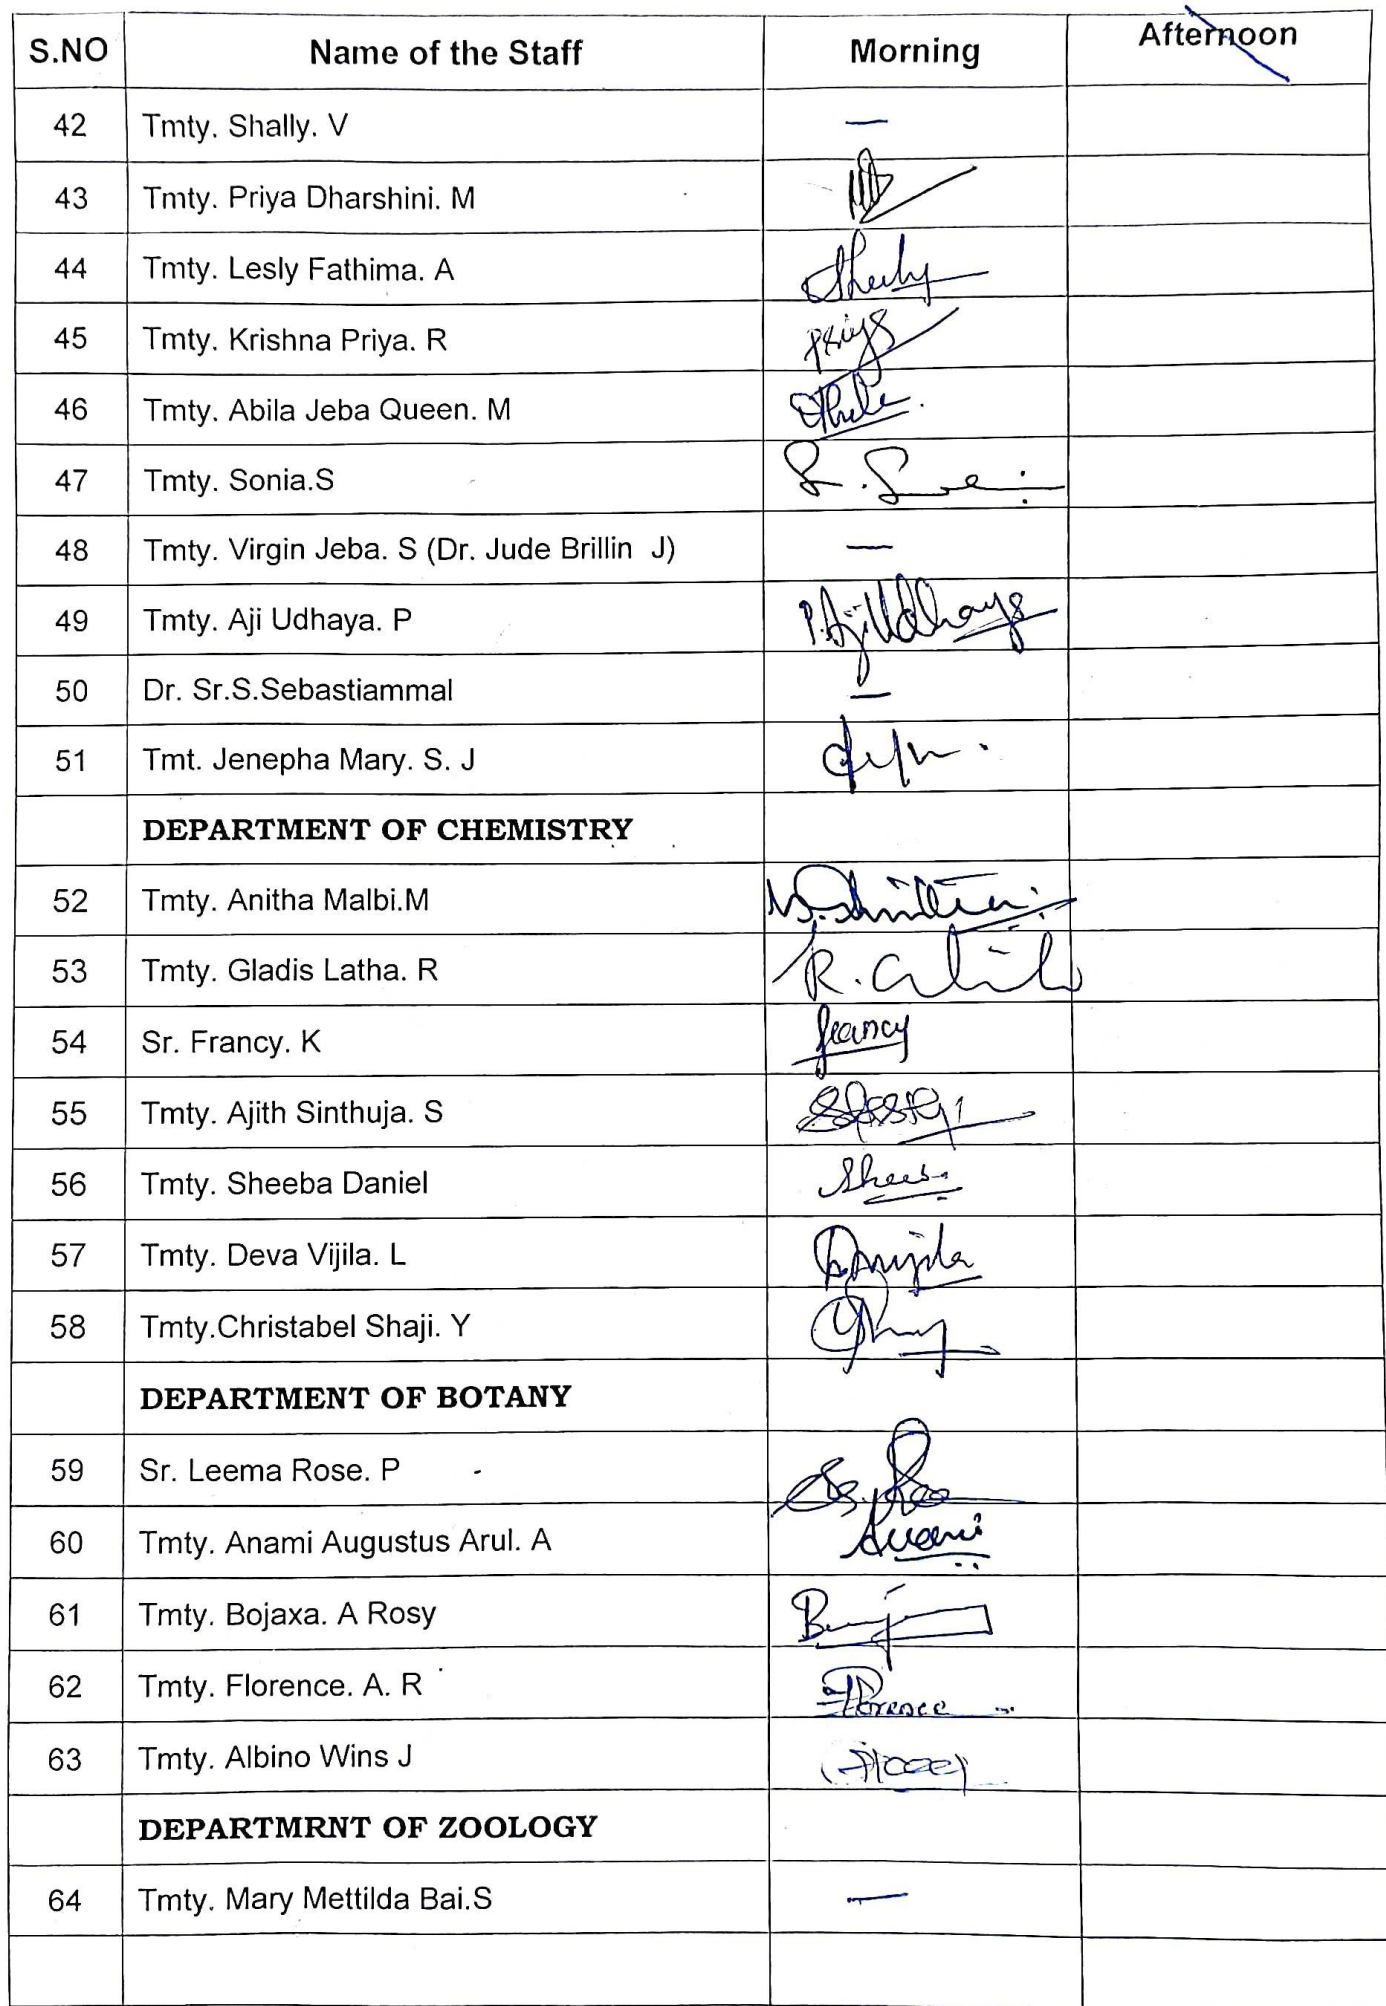 S.NO Name of the Staff Morning Afternoon
42 Tmty. Shally. V —
43 Tmty. Priya Dharshini. M
44 Tmty. Lesly Fathima. A
45 Tmty. Krishna Priya. R Priya
46 Tmty. Abila Jeba Queen. M
47 Tmty. Sonia.S
48 Tmty. Virgin Jeba. S (Dr. Jude Brillin J) —
49 Tmty. Aji Udhaya. P P.Aji Udhaya
50 Dr. Sr.S.Sebastiammal —
51 Tmt. Jenepha Mary. S. J
DEPARTMENT OF CHEMISTRY
52 Tmty. Anitha Malbi.M
53 Tmty. Gladis Latha. R
54 Sr. Francy. K francy
55 Tmty. Ajith Sinthuja. S
56 Tmty. Sheeba Daniel
57 Tmty. Deva Vijila. L
58 Tmty.Christabel Shaji. Y
DEPARTMENT OF BOTANY
59 Sr. Leema Rose. P
60 Tmty. Anami Augustus Arul. A
61 Tmty. Bojaxa. A Rosy
62 Tmty. Florence. A. R Florence
63 Tmty. Albino Wins J
DEPARTMRNT OF ZOOLOGY
64 Tmty. Mary Mettilda Bai.S —